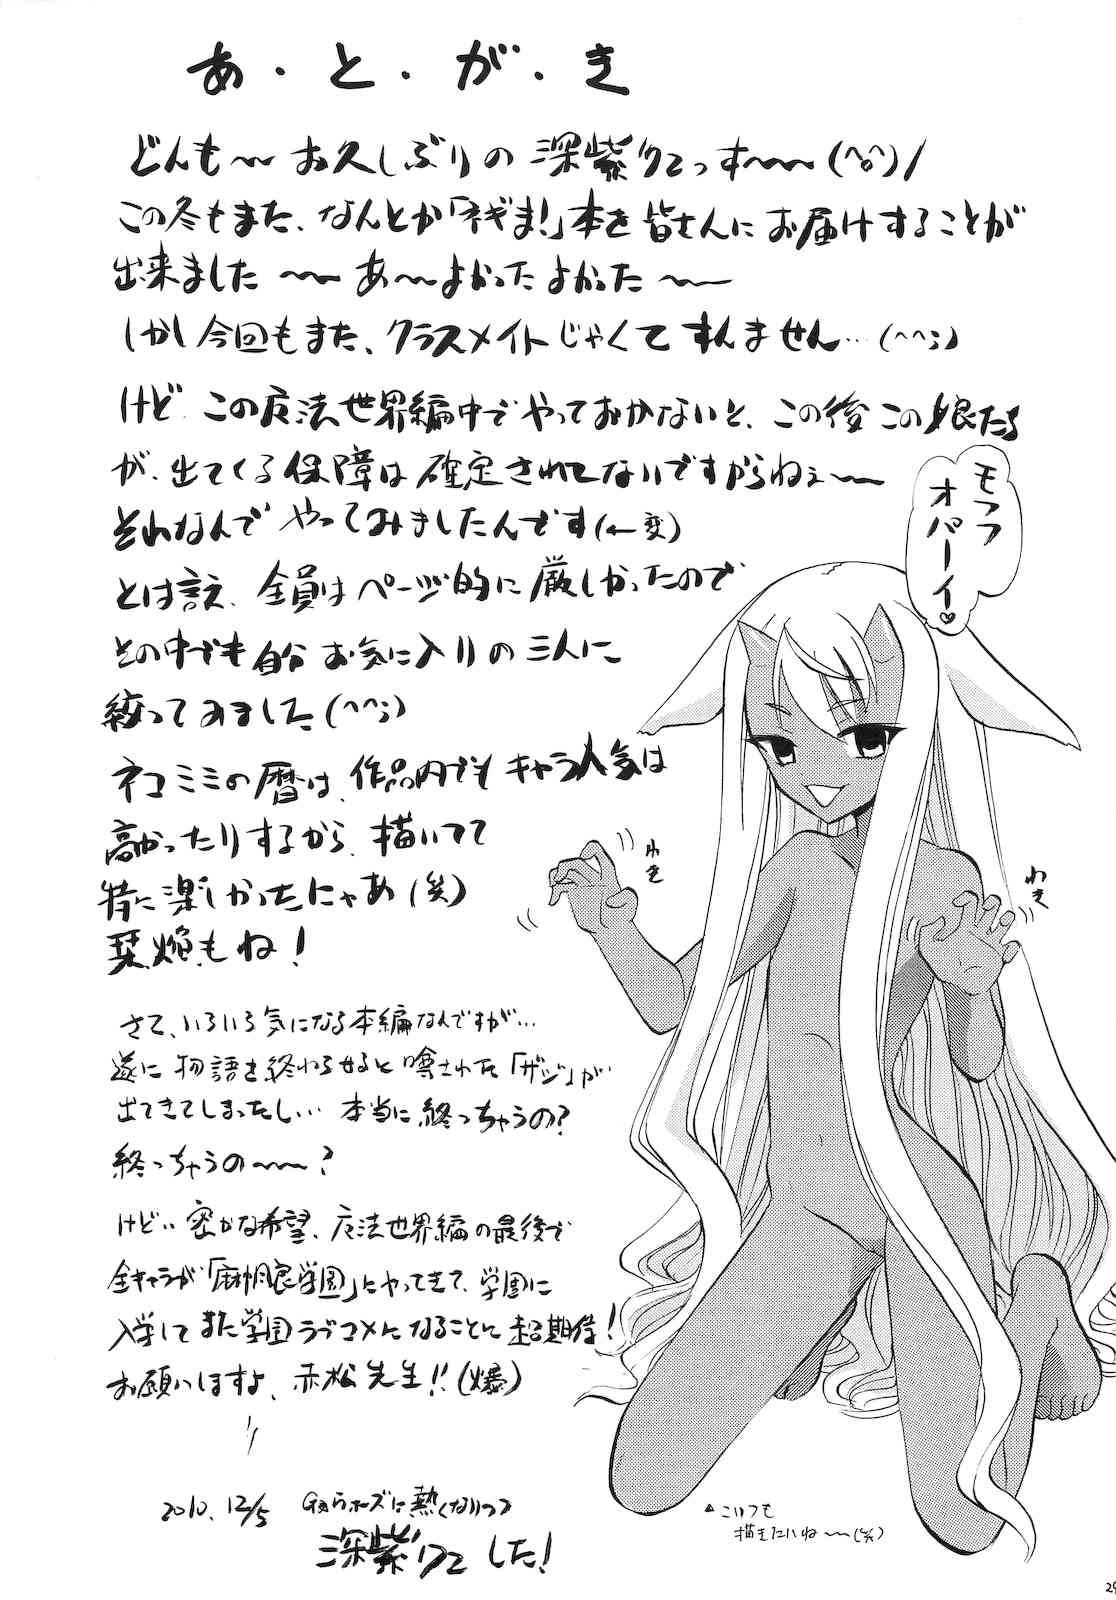 あ・と・が・き
どんも～ お久しぶりの 深紫っす～(^o^)/
この冬もまた、なんとか「ネギま!」本を皆さんにお届けすることが
出来ました ～ あ～よかった よかった ～
しかし今回もまた、クラスメイトじゃくて すんません…(^^;)
けど この魔法世界編中で やっておかないと、この後 この娘たち
が、出てくる保障は 確定されてないですからねぇ～
それなんで やってみましたんです(←変)
とは言え、全員は ページ的に 厳しかったので
その中でも 自分 お気に入りの 三人に
絞ってみました(^^;)
ネコミミの暦は、作品内でも キャラ人気は
高かったりするから、描いてて
特に楽しかったにゃあ(笑)
栞、焔もね!
さて、いろいろ気になる本編なんですが…
遂に 物語を終わらせると 噂された「ザジ」が…
出てきてしまったし… 本当に終っちゃうの?
終っちゃうの～?
けど… 密かな希望、魔法世界編の最後で
全キャラが「麻帆良学園」にやってきて、学園に
入学して また学園ラブコメになることに 超期待!
お願いしますよ、赤松先生!!(爆)
2010.12/5 に熱くなりつつ
深紫 した!
モフフ
オパーイ♡
わき
わき
▲こいつも
描きたいね～(笑)
29